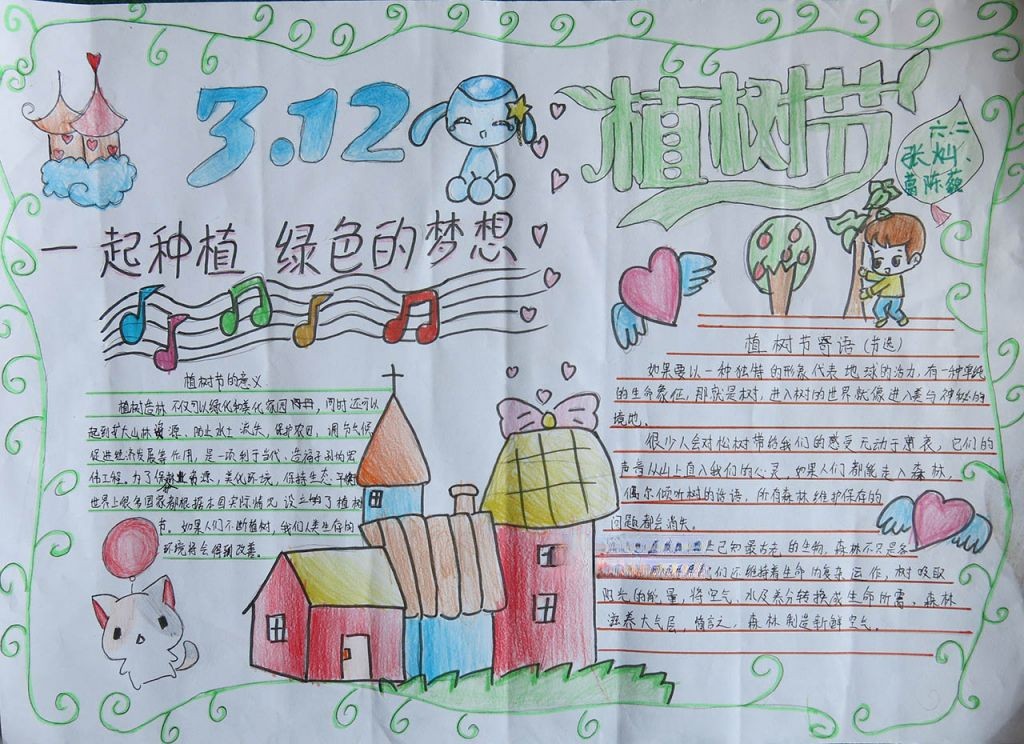 3.12
植树节
六.二
张灿、
一起种植 绿色的梦想
植树节的意义
植树造林不仅可以绿化和美化家园,同时还可以
起到扩大山林资源、防止水土流失,保护农田,调节气候
促进经济发展等作用,是一项利于当代、造福子孙的宏
伟工程,为了保护林业资源,美化环境,保持生态平衡
世界上很多国家都根据本国实际情况设立了植树
节,如果人们不断植树,我们人类生存的
环境将会得到改善。
植树节寄语(节选)
如果要以一种独特的形象代表地球的活力,有一种
的生命象征,那就是树,进入树的世界就像进入美与神秘的
境地。
很少人会对松树带给我们的感受无动于衷,它们的
声音从山上自入我们的心灵,如果人们都能走入森林,
偶尔倾听树的诉语,所有森林维护保存的
问题都会消失。
已知最古老的生物,森林不只是
们还维持着生命的复杂运作,树吸取
阳光的能量,将空气、水及养分转换成生命所需,森林
滋养大气层,简言之,森林制造新鲜空气。